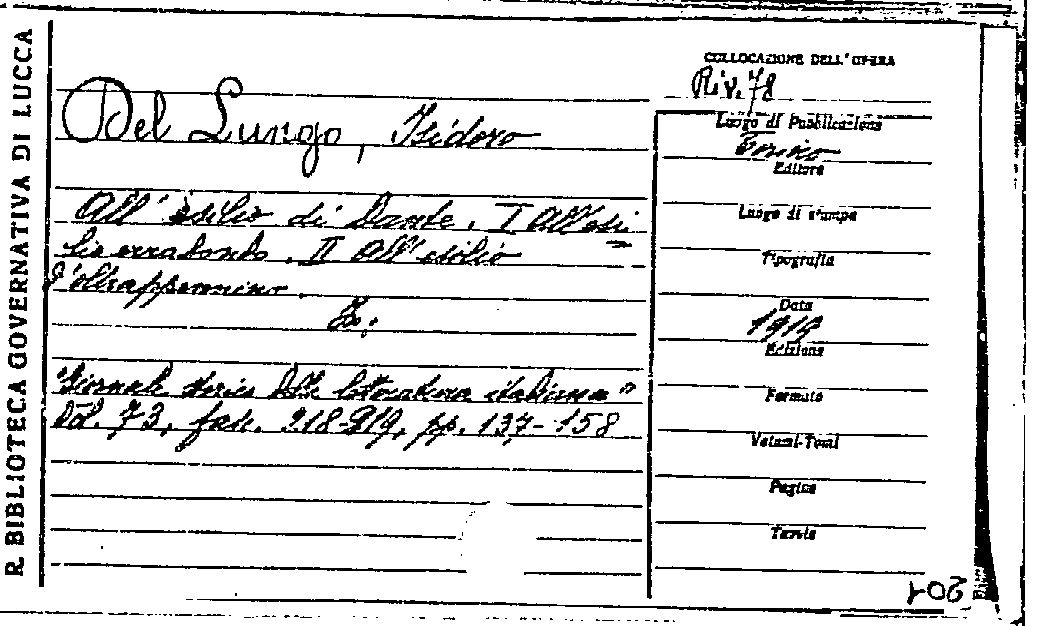 R. BIBLIOTECA GOVERNATIVA DI LUCCA
COLLOCAZIONE DELL'OPERA
Riv. 78
Del Lungo, Isidoro
All'esilio di Dante. I All'esi
lio errabondo. II All'esilio
d'oltrappennino.
In:
"Giornale storico della letteratura italiana"
Vol. 73, fasc. 218-219, pp. 137-158
Luogo di Pubblicazione
Torino
Editore
Luogo di stampa
Tipografia
Data
1919
Edizione
Formato
Volumi-Tomi
Pagine
Tavole